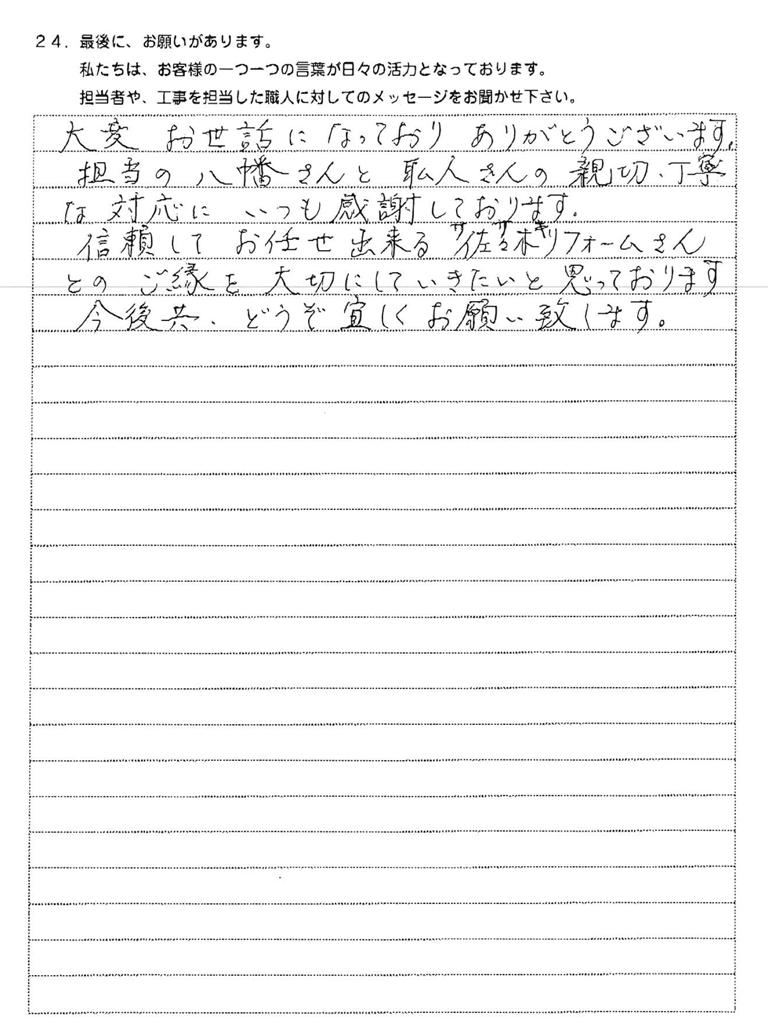 24. 最後に、お願いがあります。
私たちは、お客様の一つ一つの言葉が日々の活力となっております。
担当者や、工事を担当した職人に対してのメッセージをお聞かせ下さい。
大変 お世話に なっており ありがとうございます。
担当の 八幡さんと 職人さんの 親切、丁寧
な 対応に いつも 感謝しております。
信頼して お任せ 出来る 佐々木リフォームさん
との ご縁を 大切にしていきたいと 思っております
今後共、どうぞ 宜しく お願い 致します。